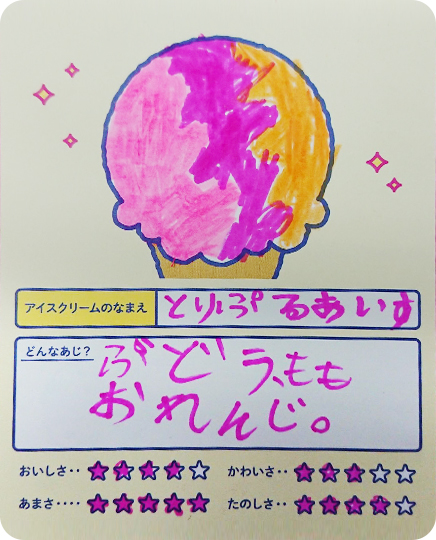 アイスクリームのなまえ
とりぷるあいす
どんなあじ？
ぶどう、もも
おれんじ。
おいしさ‥ ★★★★☆ かわいさ‥ ★★★☆☆
あまさ‥‥ ★★★★★ たのしさ‥ ★★★★☆